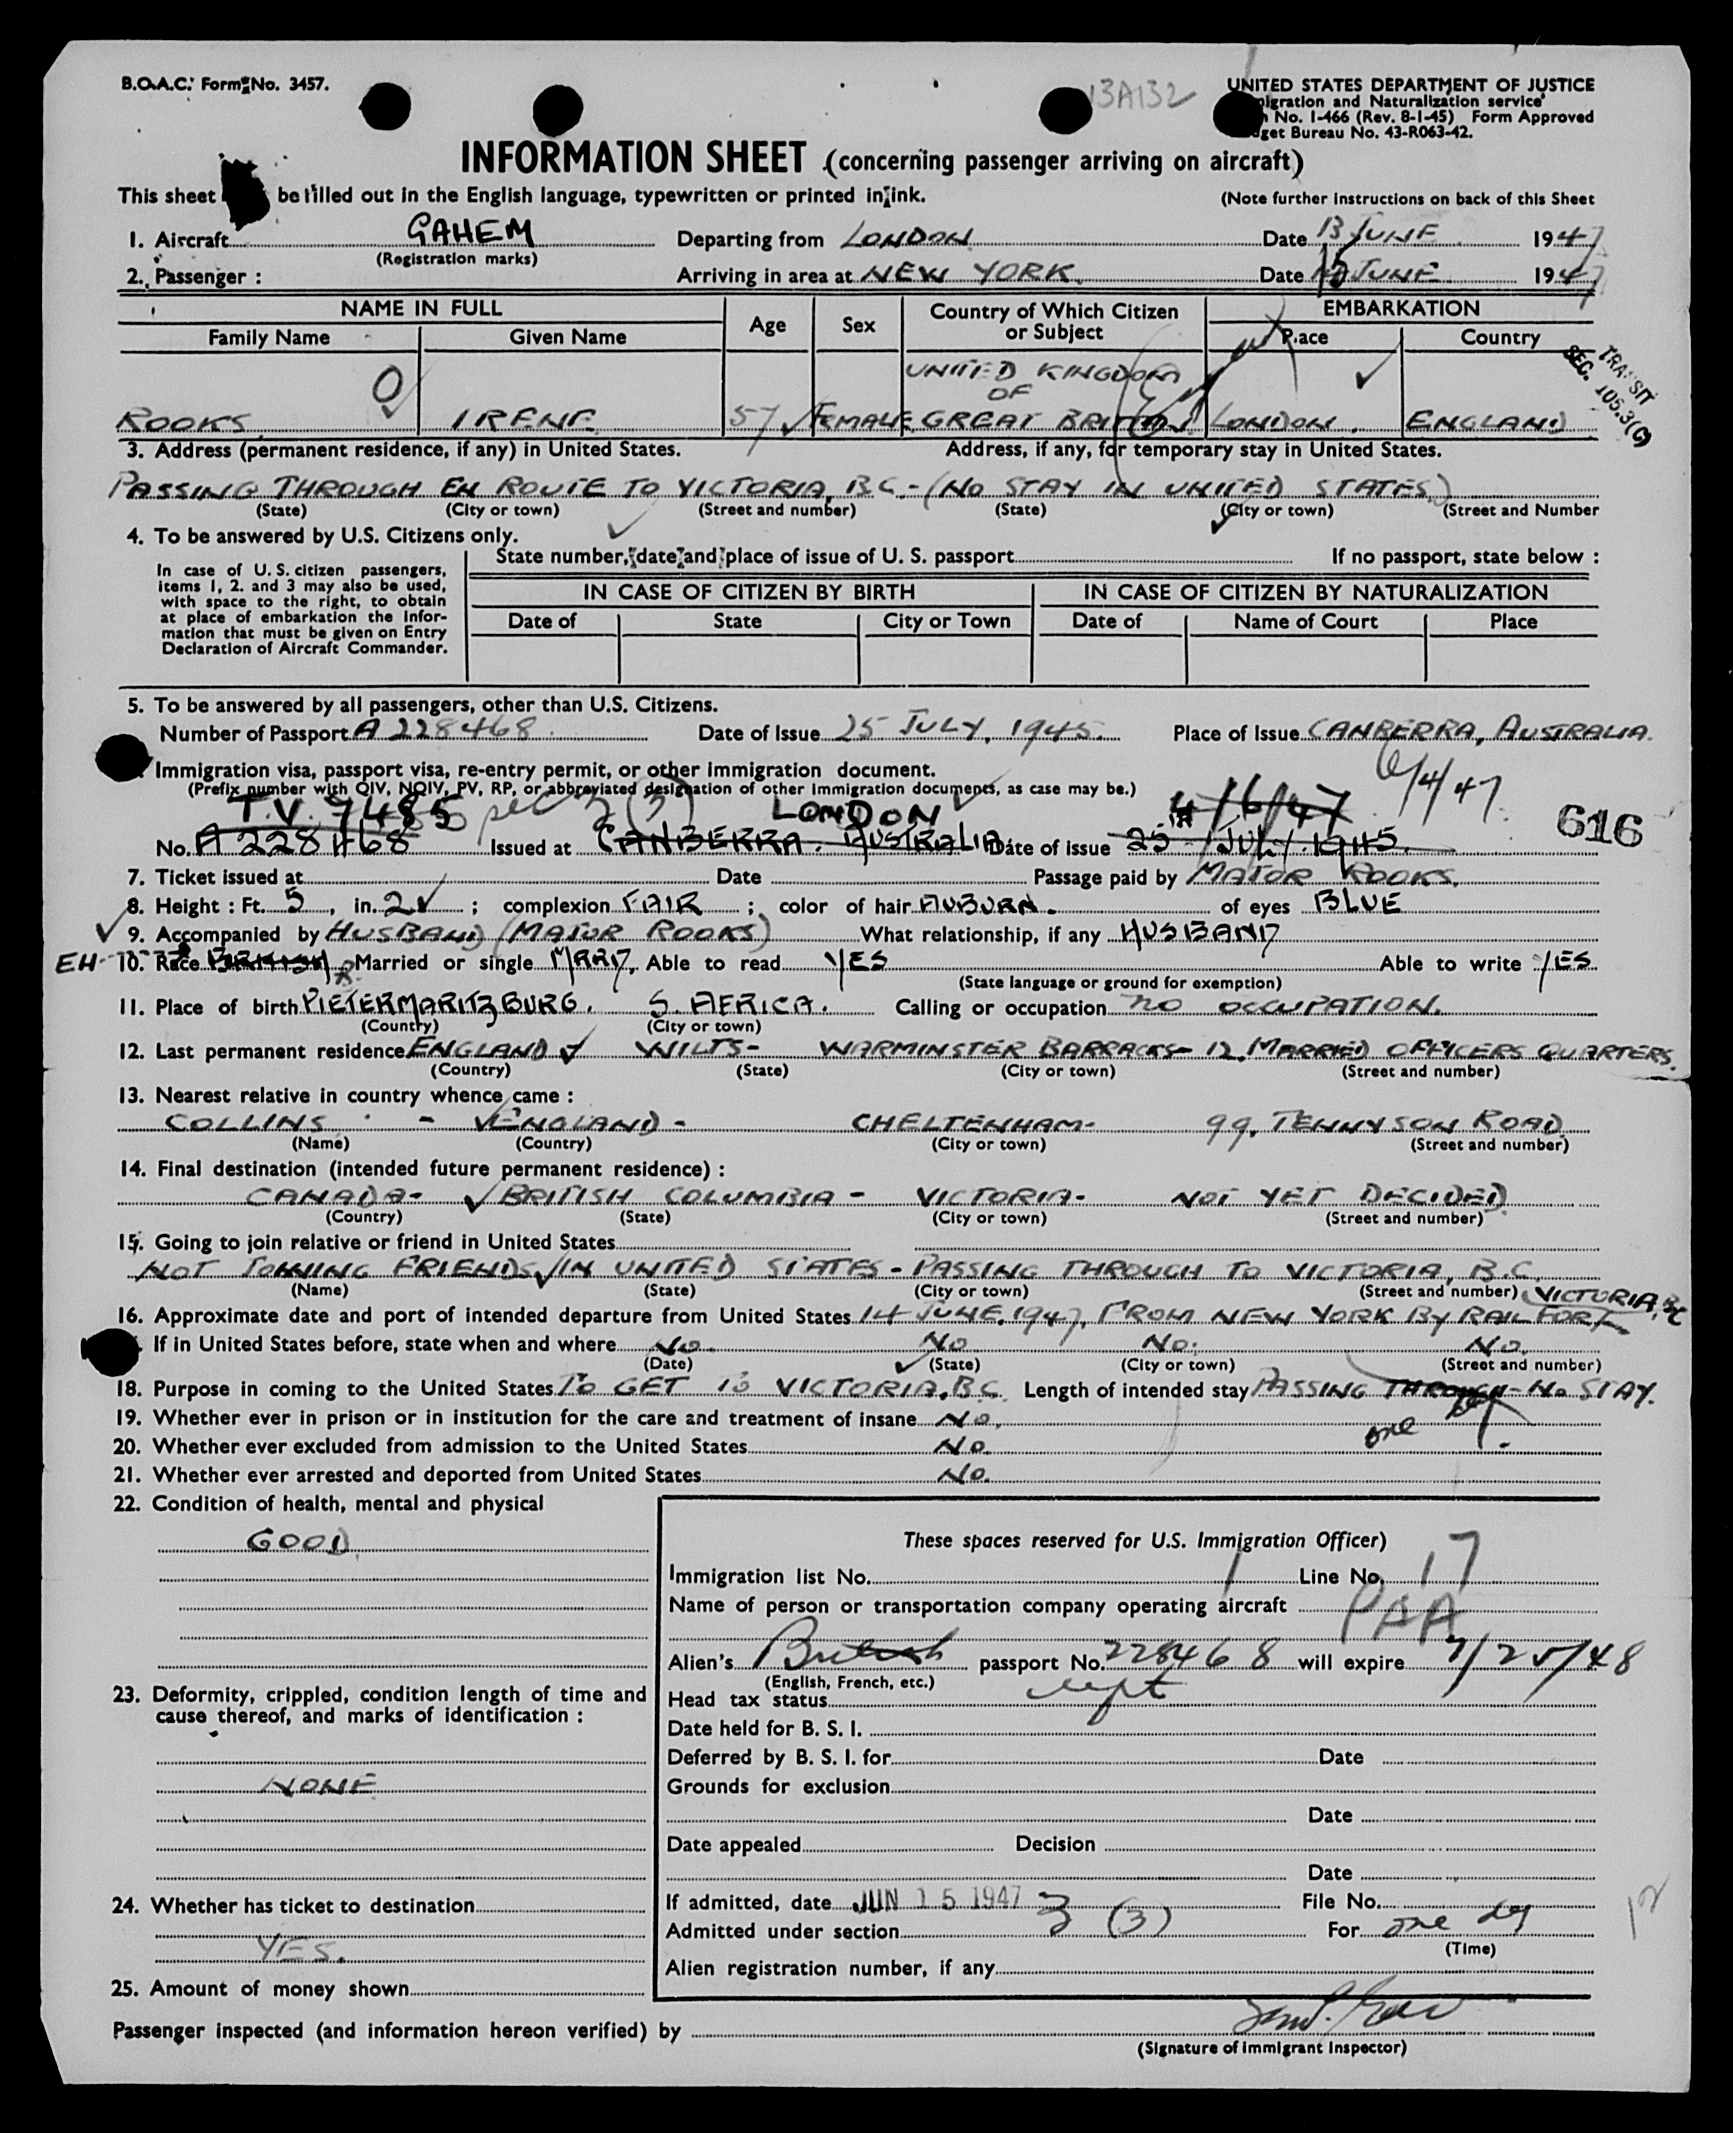 B.O.A.C. Form No. 3457.
13A132
UNITED STATES DEPARTMENT OF JUSTICE
Immigration and Naturalization service
No. I-466 (Rev. 8-1-45) Form Approved
Budget Bureau No. 43-R063-42.
INFORMATION SHEET (concerning passenger arriving on aircraft)
This sheet be filled out in the English language, typewritten or printed in ink.
(Note further instructions on back of this Sheet
1. Aircraft GAHEM Departing from LONDON Date 13 JUNE 1947
(Registration marks)
2. Passenger : Arriving in area at NEW YORK. Date 15 JUNE 1947
NAME IN FULL Age Sex Country of Which Citizen or Subject EMBARKATION
Family Name Given Name Place Country
TRANSIT
SEC. 105.3(C)
UNITED KINGDOM
OF
ROOKS IRENE 57 FEMALE GREAT BRITAIN LONDON. ENGLAND
3. Address (permanent residence, if any) in United States. Address, if any, for temporary stay in United States.
PASSING THROUGH EN ROUTE TO VICTORIA, B.C. - (NO STAY IN UNITED STATES)
(State) (City or town) (Street and number) (State) (City or town) (Street and Number
4. To be answered by U.S. Citizens only.
State number, date and place of issue of U. S. passport If no passport, state below :
In case of U. S. citizen passengers,
items 1, 2. and 3 may also be used,
with space to the right, to obtain
at place of embarkation the infor-
mation that must be given on Entry
Declaration of Aircraft Commander.
IN CASE OF CITIZEN BY BIRTH IN CASE OF CITIZEN BY NATURALIZATION
Date of State City or Town Date of Name of Court Place
5. To be answered by all passengers, other than U.S. Citizens.
Number of Passport A 228468. Date of Issue 25 JULY, 1945. Place of Issue CANBERRA, AUSTRALIA.
Immigration visa, passport visa, re-entry permit, or other immigration document.
(Prefix number with QIV, NQIV, PV, RP, or abbreviated designation of other immigration documents, as case may be.)
T.V. 7485 sec 3 (3) LONDON 4/6/47 6/4/47
616
No. A 228468 Issued at CANBERRA. AUSTRALIA Date of issue 25 JULY 1945.
7. Ticket issued at Date Passage paid by MAJOR ROOKS.
8. Height : Ft. 5, in. 2 ; complexion FAIR ; color of hair AUBURN. of eyes BLUE
9. Accompanied by HUSBAND (MAJOR ROOKS) What relationship, if any HUSBAND
EH 10. Race BRITISH Married or single MARRD, Able to read YES Able to write YES
(State language or ground for exemption)
11. Place of birth PIETERMARITZBURG. S. AFRICA. Calling or occupation NO OCCUPATION.
(Country) (City or town)
12. Last permanent residence ENGLAND WILTS- WARMINSTER BARRACKS- 12, MARRIED OFFICERS QUARTERS.
(Country) (State) (City or town) (Street and number)
13. Nearest relative in country whence came :
COLLINS - ENGLAND - CHELTENHAM- 99, TENNYSON ROAD
(Name) (Country) (City or town) (Street and number)
14. Final destination (intended future permanent residence) :
CANADA- BRITISH COLUMBIA - VICTORIA- NOT YET DECIDED
(Country) (State) (City or town) (Street and number)
15. Going to join relative or friend in United States
NOT JOINING FRIENDS IN UNITED STATES - PASSING THROUGH TO VICTORIA, B.C.
(Name) (State) (City or town) (Street and number) VICTORIA, BC
16. Approximate date and port of intended departure from United States 14 JUNE, 1947, FROM NEW YORK BY RAIL FOR
If in United States before, state when and where NO. NO NO. NO.
(Date) (State) (City or town) (Street and number)
18. Purpose in coming to the United States TO GET TO VICTORIA, B.C. Length of intended stay PASSING THROUGH - NO STAY.
one day
19. Whether ever in prison or in institution for the care and treatment of insane NO.
20. Whether ever excluded from admission to the United States NO.
21. Whether ever arrested and deported from United States NO.
22. Condition of health, mental and physical
GOOD
23. Deformity, crippled, condition length of time and
cause thereof, and marks of identification :
NONE
24. Whether has ticket to destination
YES.
25. Amount of money shown
These spaces reserved for U.S. Immigration Officer)
Immigration list No. 1 Line No. 17
Name of person or transportation company operating aircraft PAA
Alien's British passport No. 228468 will expire 7/25/48
(English, French, etc.)
Head tax status
Date held for B. S. I.
Deferred by B. S. I. for Date
Grounds for exclusion
Date
Date appealed Decision
Date
If admitted, date JUN 15 1947 File No.
Admitted under section 3 (3) For one day
(Time)
Alien registration number, if any
Passenger inspected (and information hereon verified) by
(Signature of Immigrant Inspector)